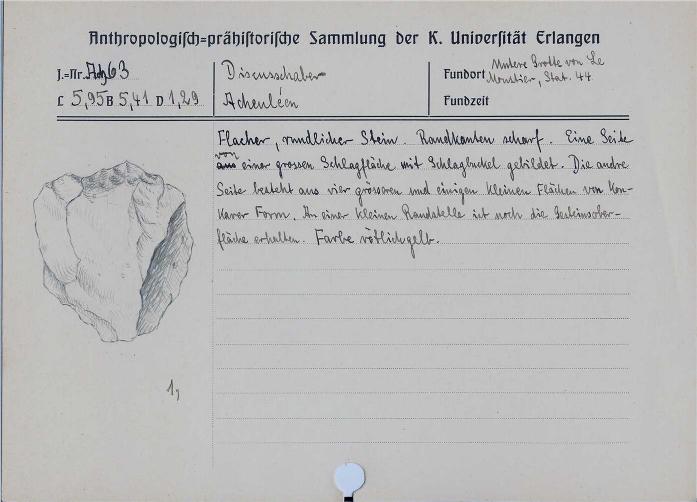 Anthropologisch=prähistorische Sammlung der K. Universität Erlangen
J.=Nr. 63
Discusschaber
Fundort Untere Grotte von Le
Moustier, Stat. 44
L 5,95 B 5,41 D 1,29
Acheuléen
Fundzeit
Flacher, rundlicher Stein. Randkanten scharf. Eine Seite
von
aus einer grossen Schlagfläche mit Schlagbuckel gebildet. Die andre
Seite besteht aus vier grösseren und einigen kleinen Flächen von kon-
kaver Form. An einer kleinen Randstelle ist noch die Gesteinsober-
fläche erhalten. Farbe rötlichgelb.